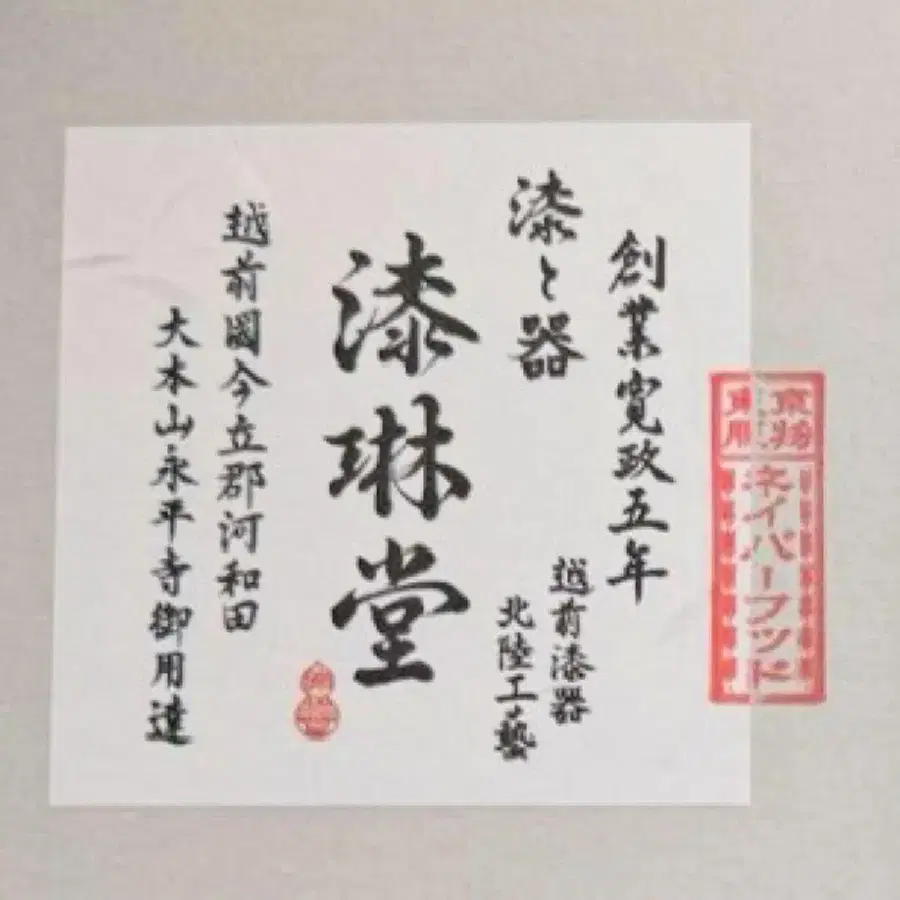 創業寛政五年
漆と器
越前漆器
北陸工藝
漆琳堂
越前國今立郡河和田
大本山永平寺御用達
ネイバーフッド